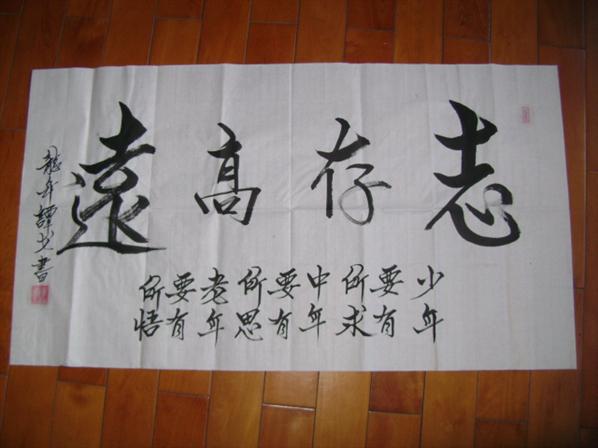 志存高遠
少年
要有
所求
中年
要有
所思
老年
要有
所悟
龍年譚書